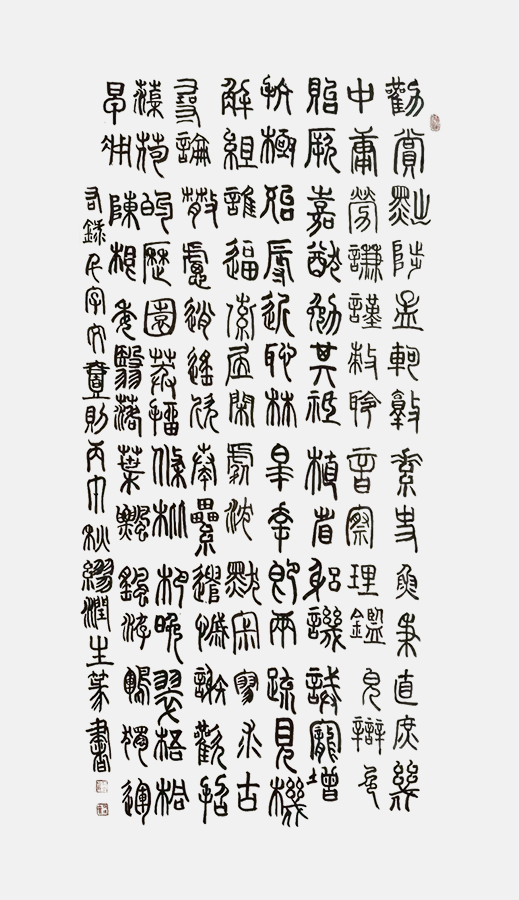 勸賞黜陟孟軻敦素史魚秉直庶幾
中庸勞謙謹敕聆音察理鑑皃辯色
貽厥嘉猷勉其祗植省躬譏誡寵增
抗極殆辱近恥林皋幸即兩疏見機
解組誰逼索居閒處沈默寂寥求古
尋論散慮逍遙欣奏累遣慼謝歡招
渠荷的歷園莽抽條枇杷晚翠梧桐
早凋陳根委翳落葉飄颻游鵾獨運
右錄千字文壹則丙申秋繆潤生篆書